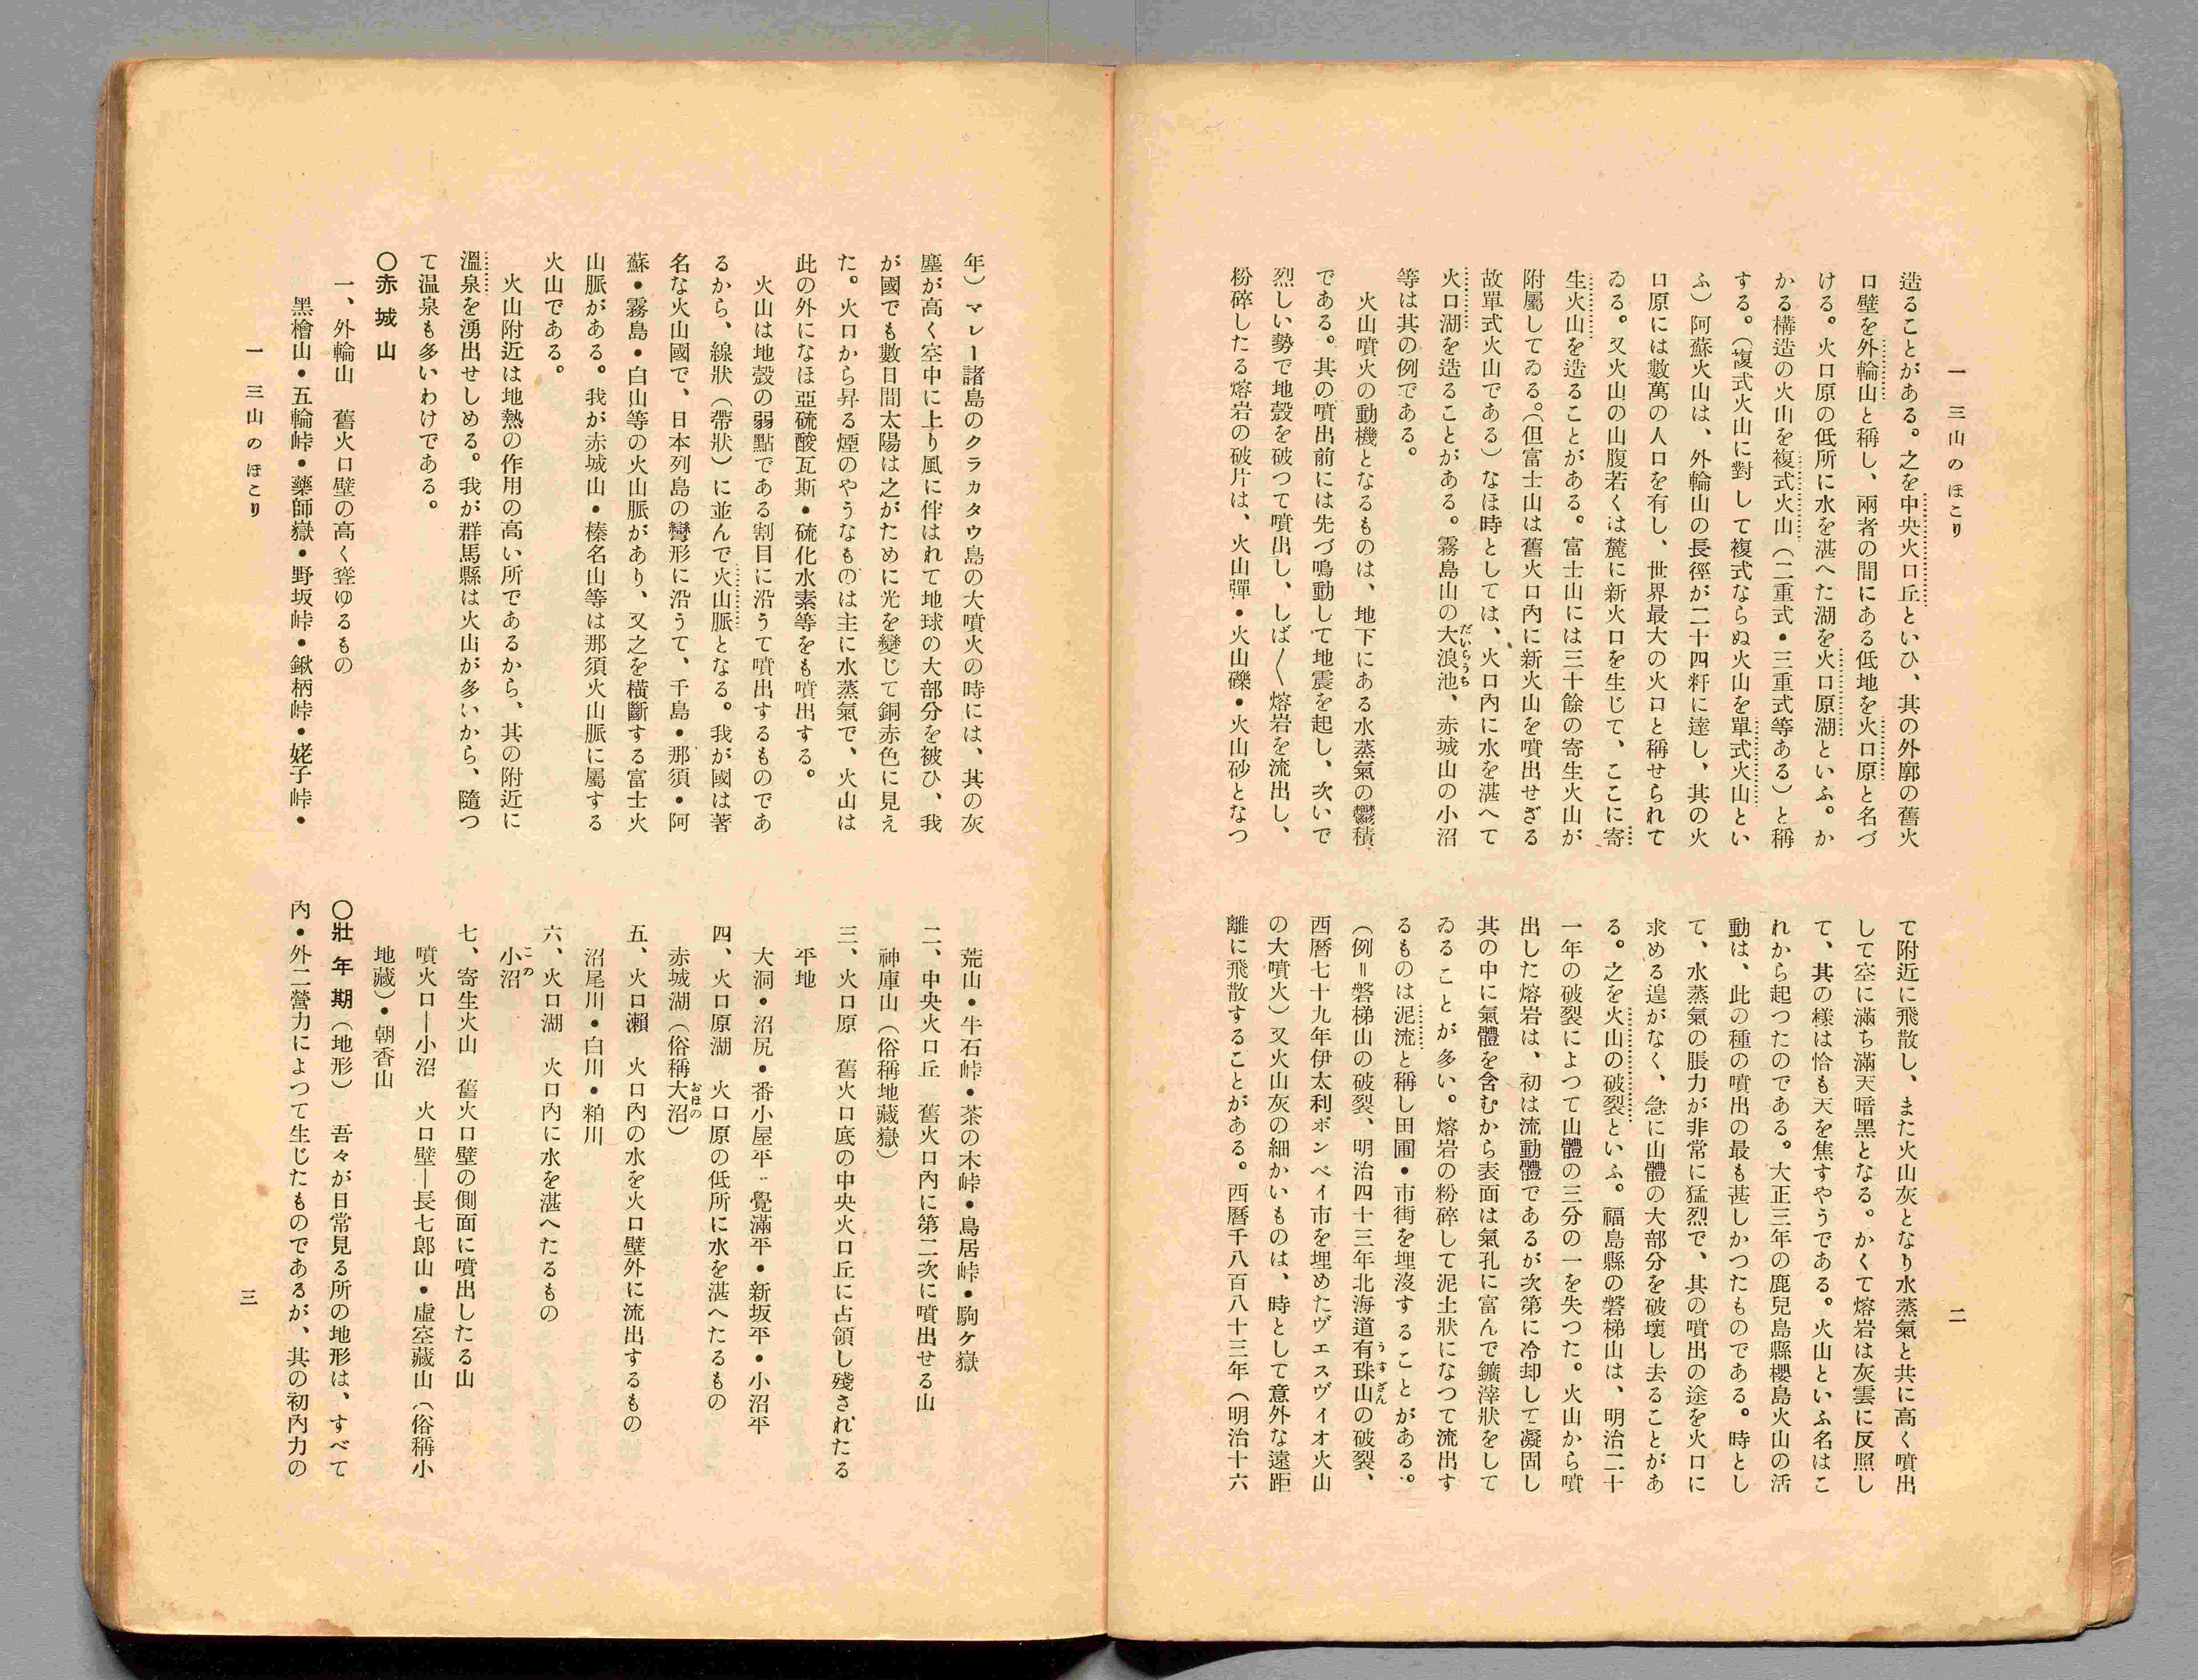 一 三山のほこり
造ることがある。之を中央火口丘といひ、其の外廓の舊火
口壁を外輪山と稱し、兩者の間にある低地を火口原と名づ
ける。火口原の低所に水を湛へた湖を火口原湖といふ。か
かる構造の火山を複式火山（二重式・三重式等ある）と稱
する。（複式火山に對して複式ならぬ火山を單式火山とい
ふ）阿蘇火山は、外輪山の長徑が二十四粁に達し、其の火
口原には數萬の人口を有し、世界最大の火口と稱せられて
ゐる。又火山の山腹若くは麓に新火口を生じて、ここに寄
生火山を造ることがある。富士山には三十餘の寄生火山が
附屬してゐる。（但富士山は舊火口內に新火山を噴出せざる
故單式火山である）なほ時としては、火口內に水を湛へて
火口湖を造ることがある。霧島山の大浪池、赤城山の小沼
だいらうち
等は其の例である。
火山噴火の動機となるものは、地下にある水蒸氣の鬱積
である。其の噴出前には先づ鳴動して地震を起し、次いで
烈しい勢で地殼を破つて噴出し、しば〱熔岩を流出し、
粉碎したる熔岩の破片は、火山彈・火山礫・火山砂となつ
て附近に飛散し、また火山灰となり水蒸氣と共に高く噴出
して空に滿ち滿天暗黑となる。かくて熔岩は灰雲に反照し
て、其の樣は恰も天を焦すやうである。火山といふ名はこ
れから起つたのである。大正三年の鹿兒島縣櫻島火山の活
動は、此の種の噴出の最も甚しかつたものである。時とし
て、水蒸氣の脹力が非常に猛烈で、其の噴出の途を火口に
求める遑がなく、急に山體の大部分を破壞し去ることがあ
る。之を火山の破裂といふ。福島縣の磐梯山は、明治二十
一年の破裂によつて山體の三分の一を失つた。火山から噴
出した熔岩は、初は流動體であるが次第に冷却して凝固し
其の中に氣體を含むから表面は氣孔に富んで鑛滓狀をして
ゐることが多い。熔岩の粉碎して泥土狀になつて流出す
るものは泥流と稱し田圃・市街を埋沒することがある。
（例＝磐梯山の破裂、明治四十三年北海道有珠山の破裂、
うすざん
西曆七十九年伊太利ポンペイ市を埋めたヴエスヴイオ火山
の大噴火）又火山灰の細かいものは、時として意外な遠距
離に飛散することがある。西曆千八百八十三年（明治十六
二
年）マレー諸島のクラカタウ島の大噴火の時には、其の灰
塵が高く空中に上り風に伴はれて地球の大部分を被ひ、我
が國でも數日間太陽は之がために光を變じて銅赤色に見え
た。火口から昇る煙のやうなものは主に水蒸氣で、火山は
此の外になほ亞硫酸瓦斯・硫化水素等をも噴出する。
火山は地殼の弱點である割目に沿うて噴出するものであ
るから、線狀（帶狀）に並んで火山脈となる。我が國は著
名な火山國で、日本列島の彎形に沿うて、千島・那須・阿
蘇・霧島・白山等の火山脈があり、又之を橫斷する富士火
山脈がある。我が赤城山・榛名山等は那須火山脈に屬する
火山である。
火山附近は地熱の作用の高い所であるから、其の附近に
溫泉を湧出せしめる。我が群馬縣は火山が多いから、隨つ
て温泉も多いわけである。
〇赤城山
一、外輪山　舊火口壁の高く聳ゆるもの
黑檜山・五輪峠・藥師嶽・野坂峠・鍬柄峠・姥子峠・
荒山・牛石峠・茶の木峠・鳥居峠・駒ケ嶽
二、中央火口丘　舊火口內に第二次に噴出せる山
神庫山（俗稱地藏嶽）
三、火口原　舊火口底の中央火口丘に占領し殘されたる
平地
大洞・沼尻・番小屋平・覺滿平・新坂平・小沼平
四、火口原湖　火口原の低所に水を湛へたるもの
赤城湖（俗稱大沼）
おほの
五、火口瀨　火口內の水を火口壁外に流出するもの
沼尾川・白川・粕川
六、火口湖　火口內に水を湛へたるもの
小沼
この
七、寄生火山　舊火口壁の側面に噴出したる山
噴火口―小沼　火口壁―長七郞山・虛空藏山（俗稱小
地藏）・朝香山
〇壯年期（地形）　吾々が日常見る所の地形は、すべて
內・外二營力によつて生じたものであるが、其の初內力の
一 三山のほこり
三